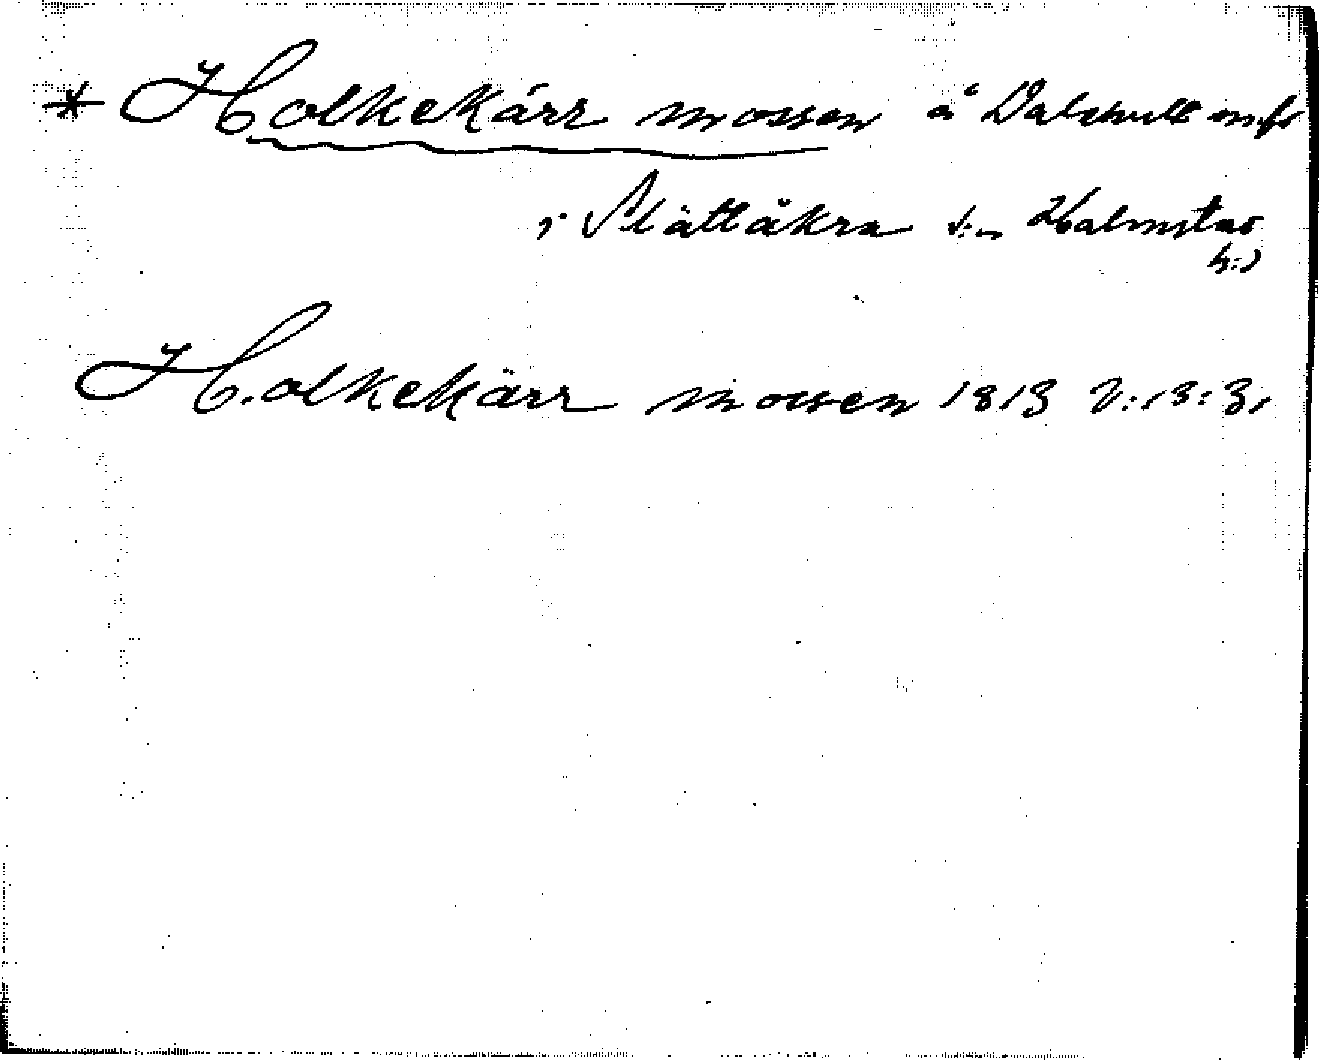 * Holkekärr mossen å Dalshult
i Slättåkra s:n Halmstad
h:d
Holkekärr mossen 1813